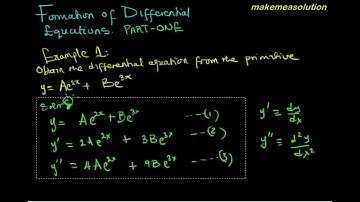 makemeasolution
Formation of Differential
Equations. PART-ONE
Example 1:
Obtain the differential equation from the primitive
y = Ae^{2x} + Be^{3x}
Soln:
y = Ae^{2x} + Be^{3x} ---(1)
y' = 2Ae^{2x} + 3Be^{3x} ---(2)
y'' = 4Ae^{2x} + 9Be^{3x} ----(3)
y' = dy/dx
y'' = d²y/dx²